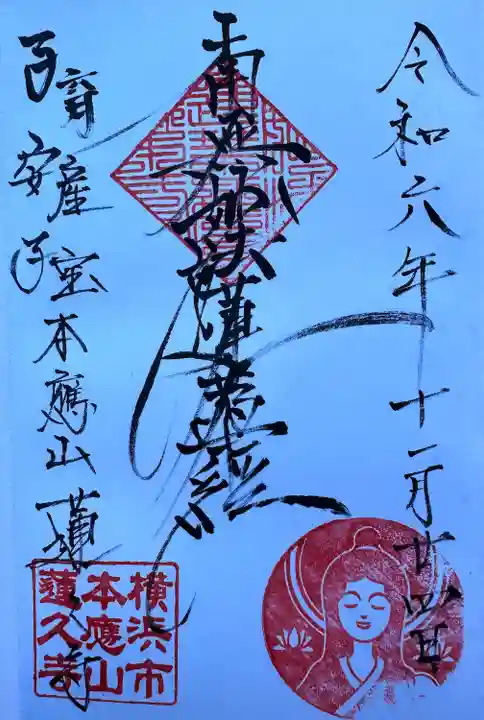 令和六年十一月廿四日
南無妙法蓮華経
子育安産子宝本應山蓮久寺
横浜市
本應山
蓮久寺